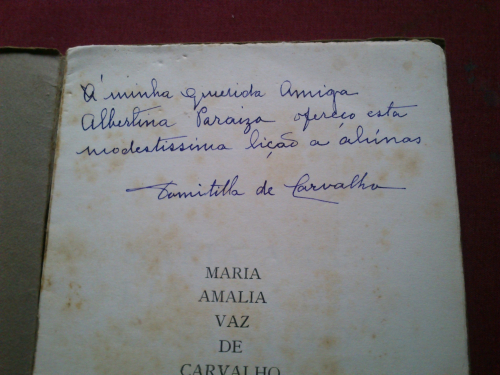 Á minha querida Amiga
Albertina Paraiza ofereço esta
modestissima lição a alunas
Domitilla de Carvalho
MARIA
AMALIA
VAZ
DE
CARVALHO